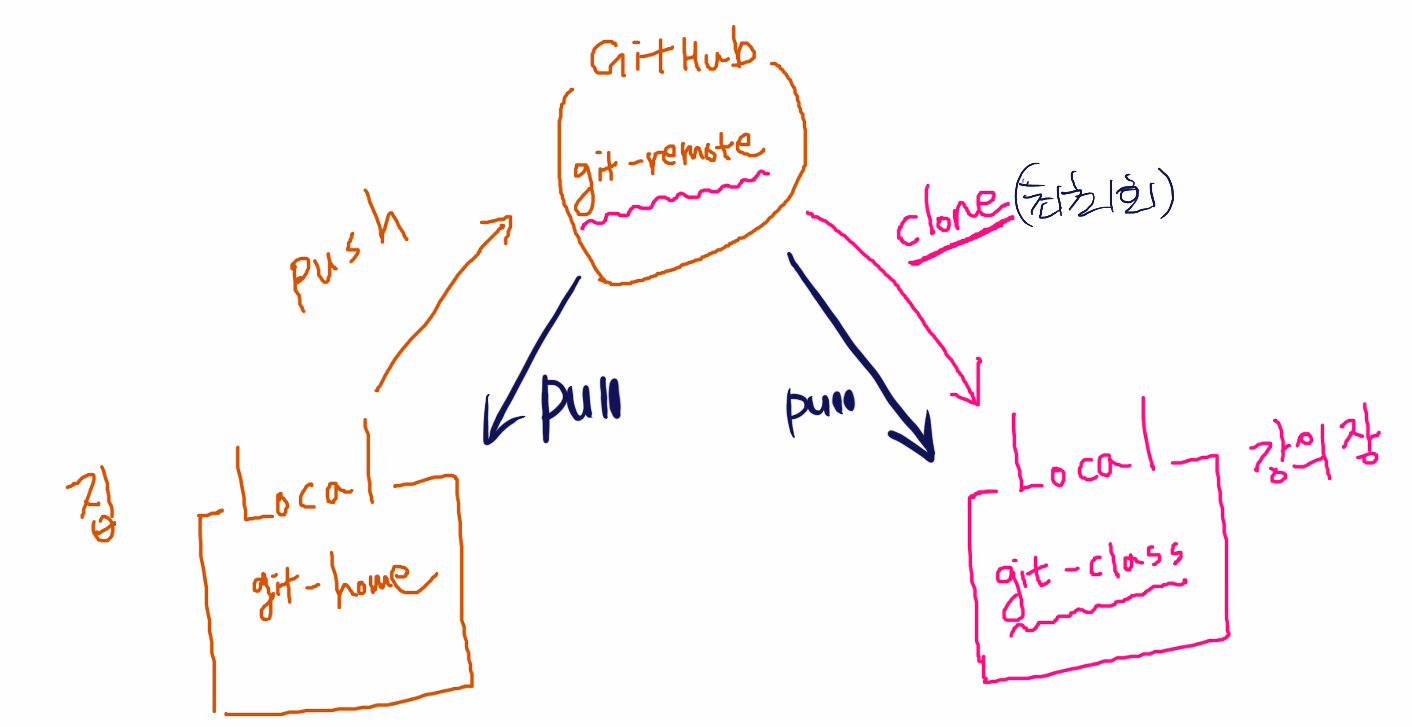 GitHub
git-remote
push
clone (최초1회)
pull
pull
집
Local
git-home
Local
강의장
git-class